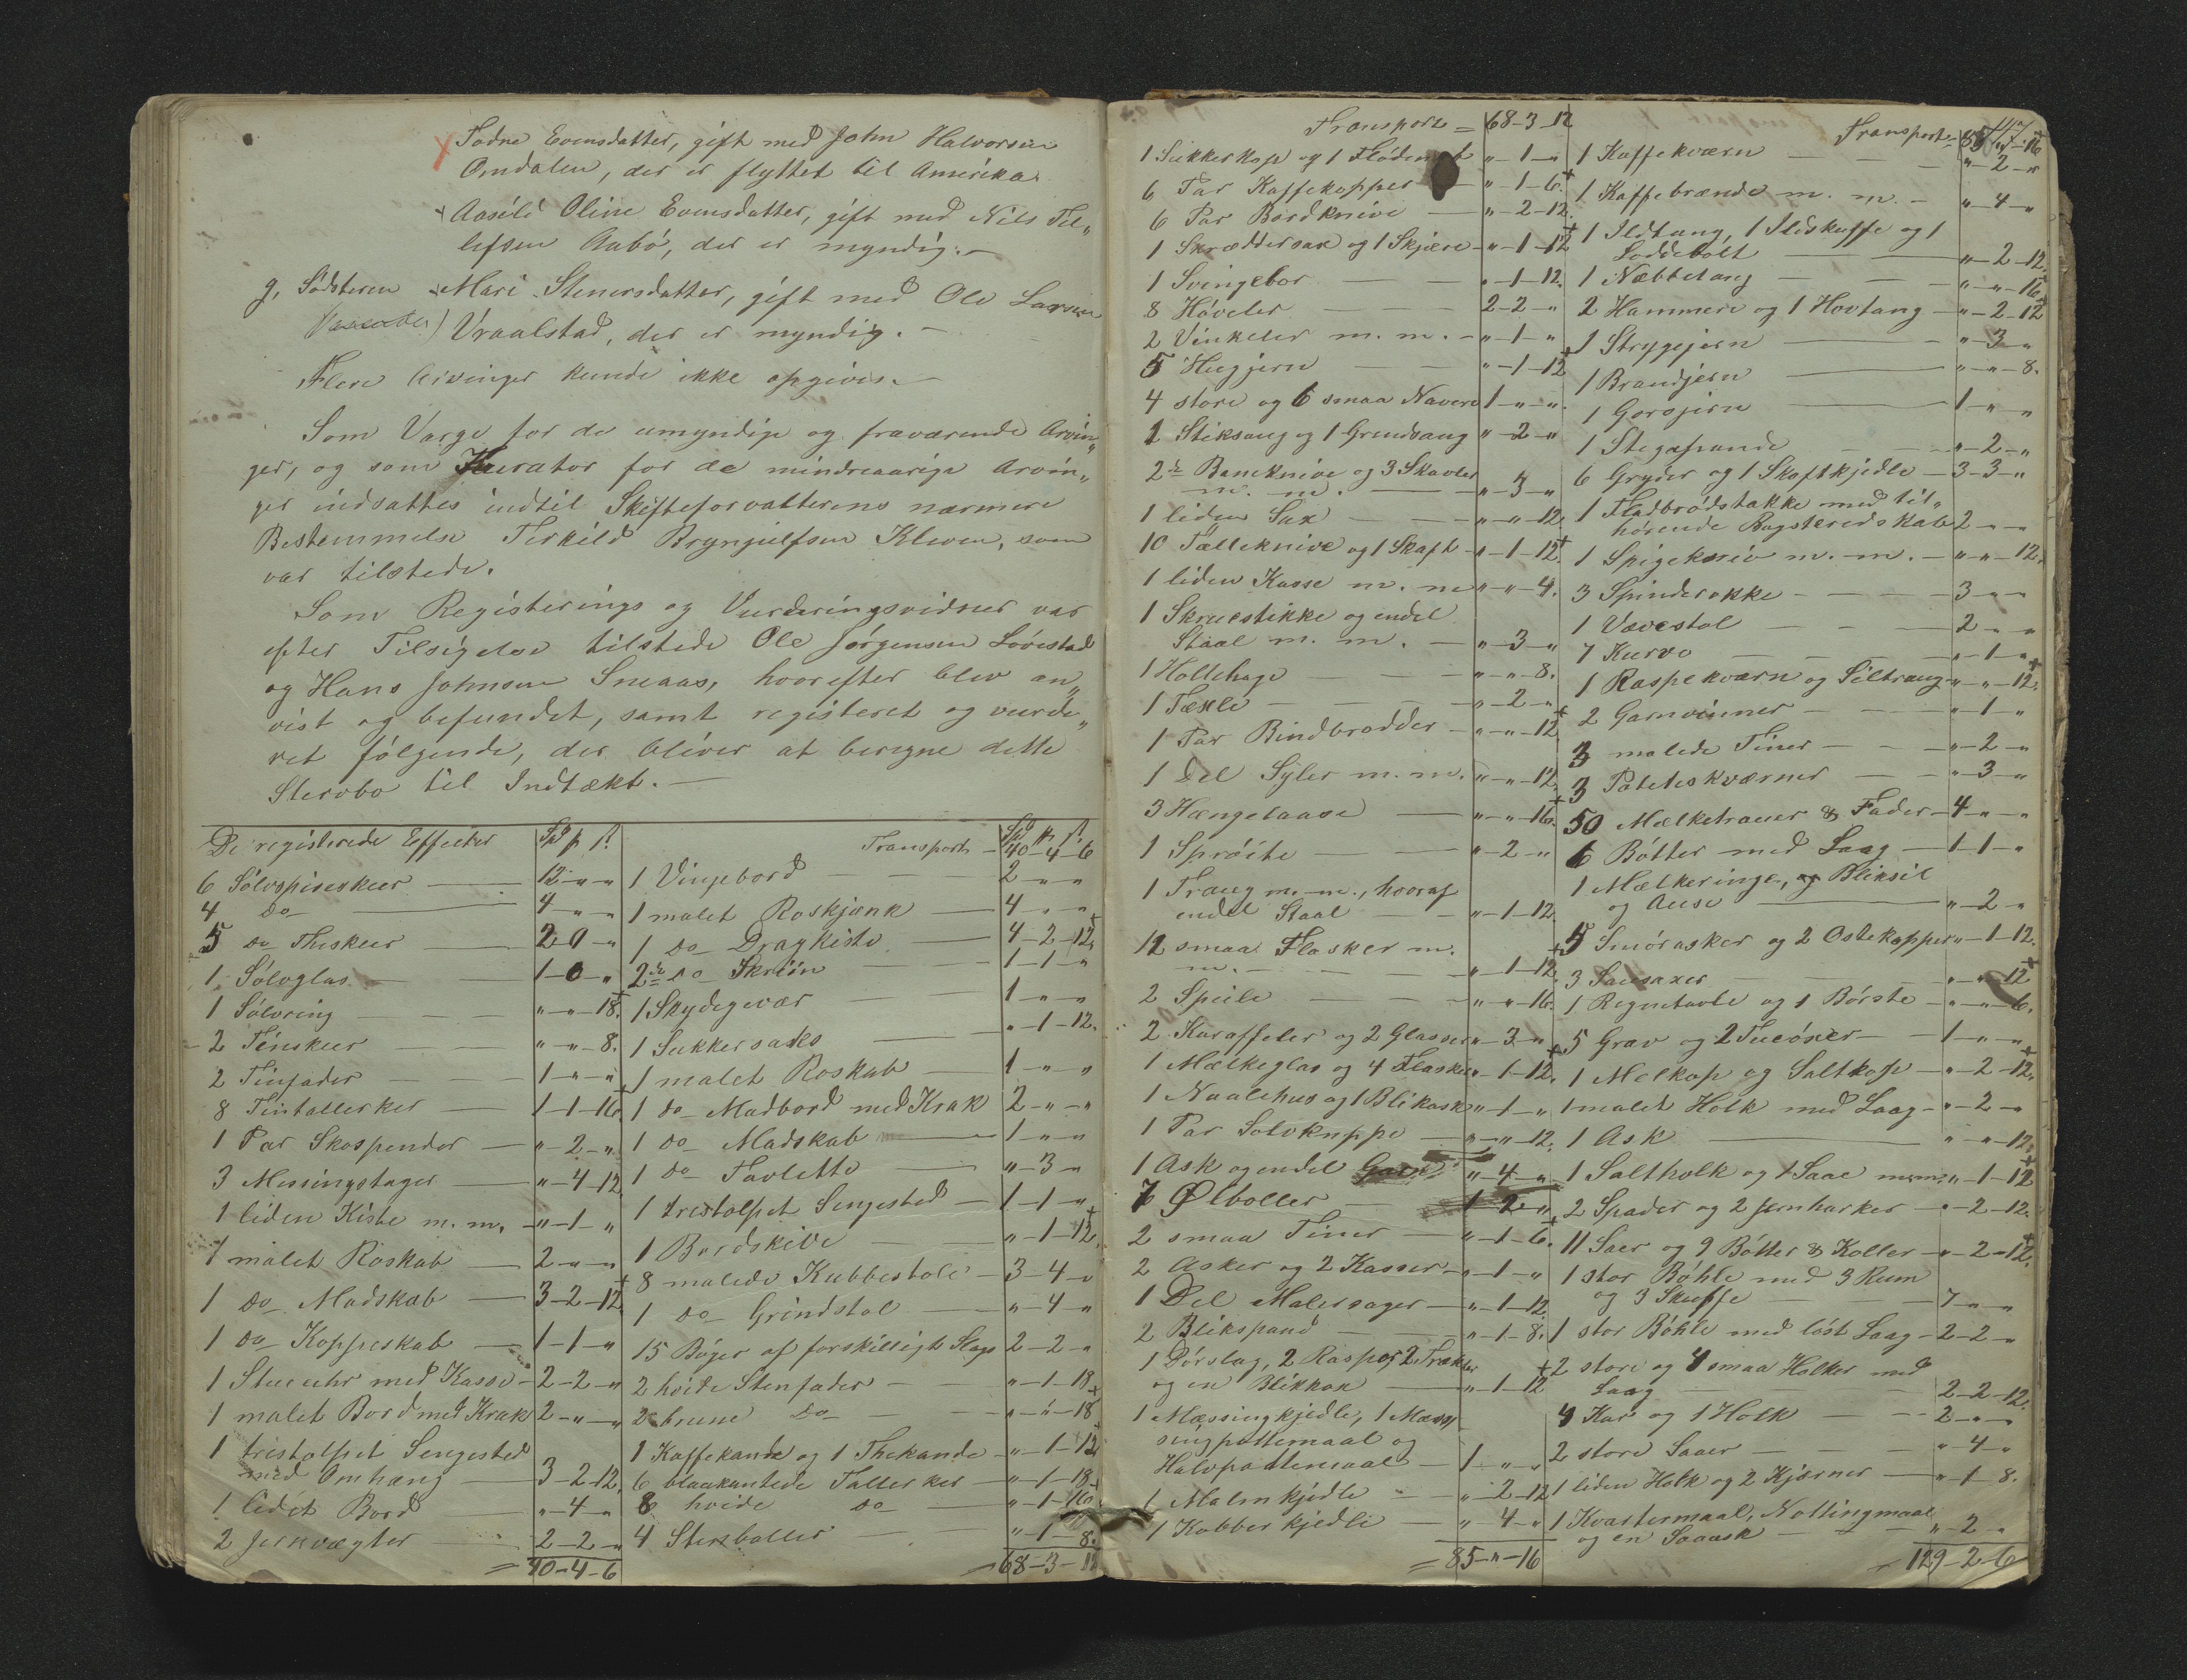 Todne Evensdatter, gift med John Halvorsen
Omdalen, der er flyttet til Amerika.
Aasild Oline Evensdatter, gift med Nils Tel„
lefsen Aabö, der er myndig. —
g, Södsteren Mari Stenersdatter, gift med Ole Larsen
Vraalstad, der er myndig. —
Flere Arvinger kunde ikke opgives. —
Som Værge for de umyndige og fraværende Arvin„
ger, og som Kurator for de mindreaarige Arvin„
ger indsattes indtil Skifteforvalterens nærmere
Bestemmelse Terkild Brynjulfsen Kleven, som
var tilstede.
Som Registerings og Vurderingsvidner var
efter Tilsigelse tilstede Ole Jörgensen Lövestad
og Hans Johnsen Sneaas, hvorefter blev an„
vist og befundet, samt registeret og vurde„
ret fölgende, der bliver at beregne dette
Stervbo til Indtækt. —
De registerede Effecter Spd p s.
6 Sölvspiseskeer — 12 - „ - „
4 do — 4 - „ - „
5 do Theskeer — 2 0 - „
1 Sölvglas — 1 - 0 - „
1 Sölvring — „ - „ - 18.
2 Tinskeer — „ - „ - 8.
2 Tinfader — 1 - „ - „
8 Tintallerker — 1 - 1 - 16.
1 Par Skospender — „ - 2 - „
3 Messingstager — „ - 4 - 12
1 liden Kiste m. m. — „ - 1 - „
1 malet Roskab — 2 - „ - „
1 do Madskab — 3 - 2 - 12.
1 do Koppeskab — 1 - 1 - „
1 Stueuhr med Kasse — 2 - 2 - „
1 malet Bord med Krak 2 - „ - „
1 trestolpet Sengested
med Omhæng — 3 - 2 - 12.
1 lidet Bord — „ - 4 - „
2 Jernvægter — 2 - 2 - „
= 40 - 4 - 6
Transport — Spd p s. 40 - 4 - 6
1 Vingebord — 2 - „ - „
1 malet Roskjænk — 4 - „ - „
1 do Dragkiste — 4 - 2 - 12.
2de do Skriin — 1 - 1 - „
1 Skydegevær — 1 - „ - „
1 Sukkersaks — „ - 1 - 12.
1 malet Roskab — 1 - „ - „
1 do Madbord med Krak 2 - „ - „
1 do Madskab — 1 - „ - „
1 do Tavlette — „ - 3 - „
1 trestolpet Sengested — 1 - 1 - „
1 Bordskive — „ - 1 - 12.
8 malede Kubbestole — 3 - 4 - „
1 do Grindstol — „ - 4 - „
15 Böger af forskilligt Slags 2 - 2 - „
2 hvide Stenfader — „ - 1 - 18
2 brune do — „ - „ - 18
1 Kaffekande og 1 Thekande — „ - 1 - 12
6 blaakantede Tallerker — „ - 1 - 18
8 hvide do — „ - 1 - 16
4 Stenboller „ - 1 - 8.
= 68 - 3 - 12
Transport = 68 - 3 - 12
1 Sukkerkop og 1 — „ - 1 - „
6 Par Kaffekopper — „ - 1 - 6.
6 Par Bordknive — „ - 2 - 12.
1 Skræddersax og 1 Skjære — „ - 1 - 12
1 Svingebor — „ - 1 - 12.
8 Höveler — 2 - 2 - „
2 Vinkeler m. m. — „ - 1 - „
5 Hugjern — „ - 1 - 12
4 store og 6 smaa Navere 1 - „ - „.
1 Stiksaug og 1 Grindsaug „ - 2 - „
2de Baneknive og 3 Skavler
m. m. — „ - 3 - „
1 liden Sax — „ - „ - 12.
10 Tælleknive og 1 Skaft — „ - 1 - 12.
1 liden Kasse m. m „ - „ - 4.
1 Skruestikke og endel
Staal m. m. — „ - 3 - „
1 Hollehage — „ - „ - 8.
1 Texle — „ - 2 - „
1 Par Bindbrodder — „ - „ - 12
1 Del Syler m. m. „ - „ - 12.
3 Hængelaase — „ - „ - 16.
1 Spröite — „ - 2 - „
1 Traug m. m., hvoraf
endel Staal — „ - 1 - 12.
12 smaa Flasker m.
m. — „ - 1 - 12.
2 Speile — „ - „ - 16.
2 Karaffeler og 2 Glasser „ - 3 - „
1 Mælkeglas og 4 Flasker „ - 1 - 12.
1 Naalehus og 1 Blikask „ - 1 - „
1 Par Sölvknappe — „ - „ - 12.
1 Ask og endel Garn „ - 4 - „
7 Ölboller — 1 - 2 - „
2 smaa Tiner — „ - 1 - 6.
2 Asker og 2 Kasser — „ - 1 - „
1 Del Malersager — „ - 1 - 12.
2 Blikspand — „ - 1 - 8.
1 Dörslag, 2 Rasper, 2 Trækter
og en — „ - 1 - 12
1 Messingkjedle, 1 Mess„
singpottemaal og
Halvpottemaal — 1 - „ - „
1 Malmkjedle — „ - 2 - 12
1 Kobberkjedle — „ - 4 - „
= 85 - „ - 16
Transport = 85 - „ - 16
1 Kaffekværn — „ - 2 - „
1 Kaffebrænde m. m. — „ - 4 - „
1 Ildtang, 1 Ildskuffe og 1
Loddebolt — „ - 2 - 12.
1 Næbbetang — „ - „ - 16.
2 Hammere og 1 Hovtang — „ - 2 - 12
1 Strygejern — „ - 3 - „
1 Brandjern — „ - „ - 8.
1 Gorojern — 1 - „ - „
1 Stegepande — „ - 2 - „
6 Gryder og 1 Skaftkjedle — 3 - 3 - „
1 Fladbrödstakke med til„
hörende Bagsteredskab 2 - „ - „
1 Spigekniv m. m. — „ - „ - 12.
3 Spinderokke — 3 - „ - „
1 Vævestol — 2 - „ - „
7 Kurve — „ - 1 - „
1 Raspekværn og Siltraug — „ - „ - 12.
2 Garnvinner — „ - 1 - „
3 malede Tiner — „ - 2 - „
3 Poteteskværner — „ - 3 - „
50 Mælketrauer & Fader — 4 - „ - „
6 Bötter med Laag — 1 - 1 - „
1 Mælkeringe, Bliksil
og Ause — „ - 2 - „
5 Smörasker og 2 Ostekopper „ - 1 - 12.
3 Sausaxer — „ - „ - 12
1 Regnetavle og 1 Börste — „ - „ - 6.
5 Grav og 2 Tueöxer — 1 - „ - „
1 Melkop og Saltkop — „ - 2 - 12.
1 malet Holk med Laag — „ - 2 - „
1 Ask — „ - „ - 12.
1 Saltholk og 1 Saae m.m. „ - 1 - 12
2 Spader og 2 Jernharker — „ - 2 - 12.
11 Saer og 9 Bötter & Koller — „ - 2 - 12.
1 stor Böhle med 3 Rum
og 3 Skuffe — 7 - „ - „
1 stor Böhle med löst Laag — 2 - 2 - „
2 store og 4 smaa Holker med
Laag — 2 - 2 - 12.
4 Kar og 1 Holk — 2 - „ - „
2 store Saaer — „ - 4 - „
1 liden Holk og 2 Kjerner — „ - 1 - 8.
1 Kvartermaal, Nollingmaal
og en — „ - 2 „
= 129 - 2 - 6